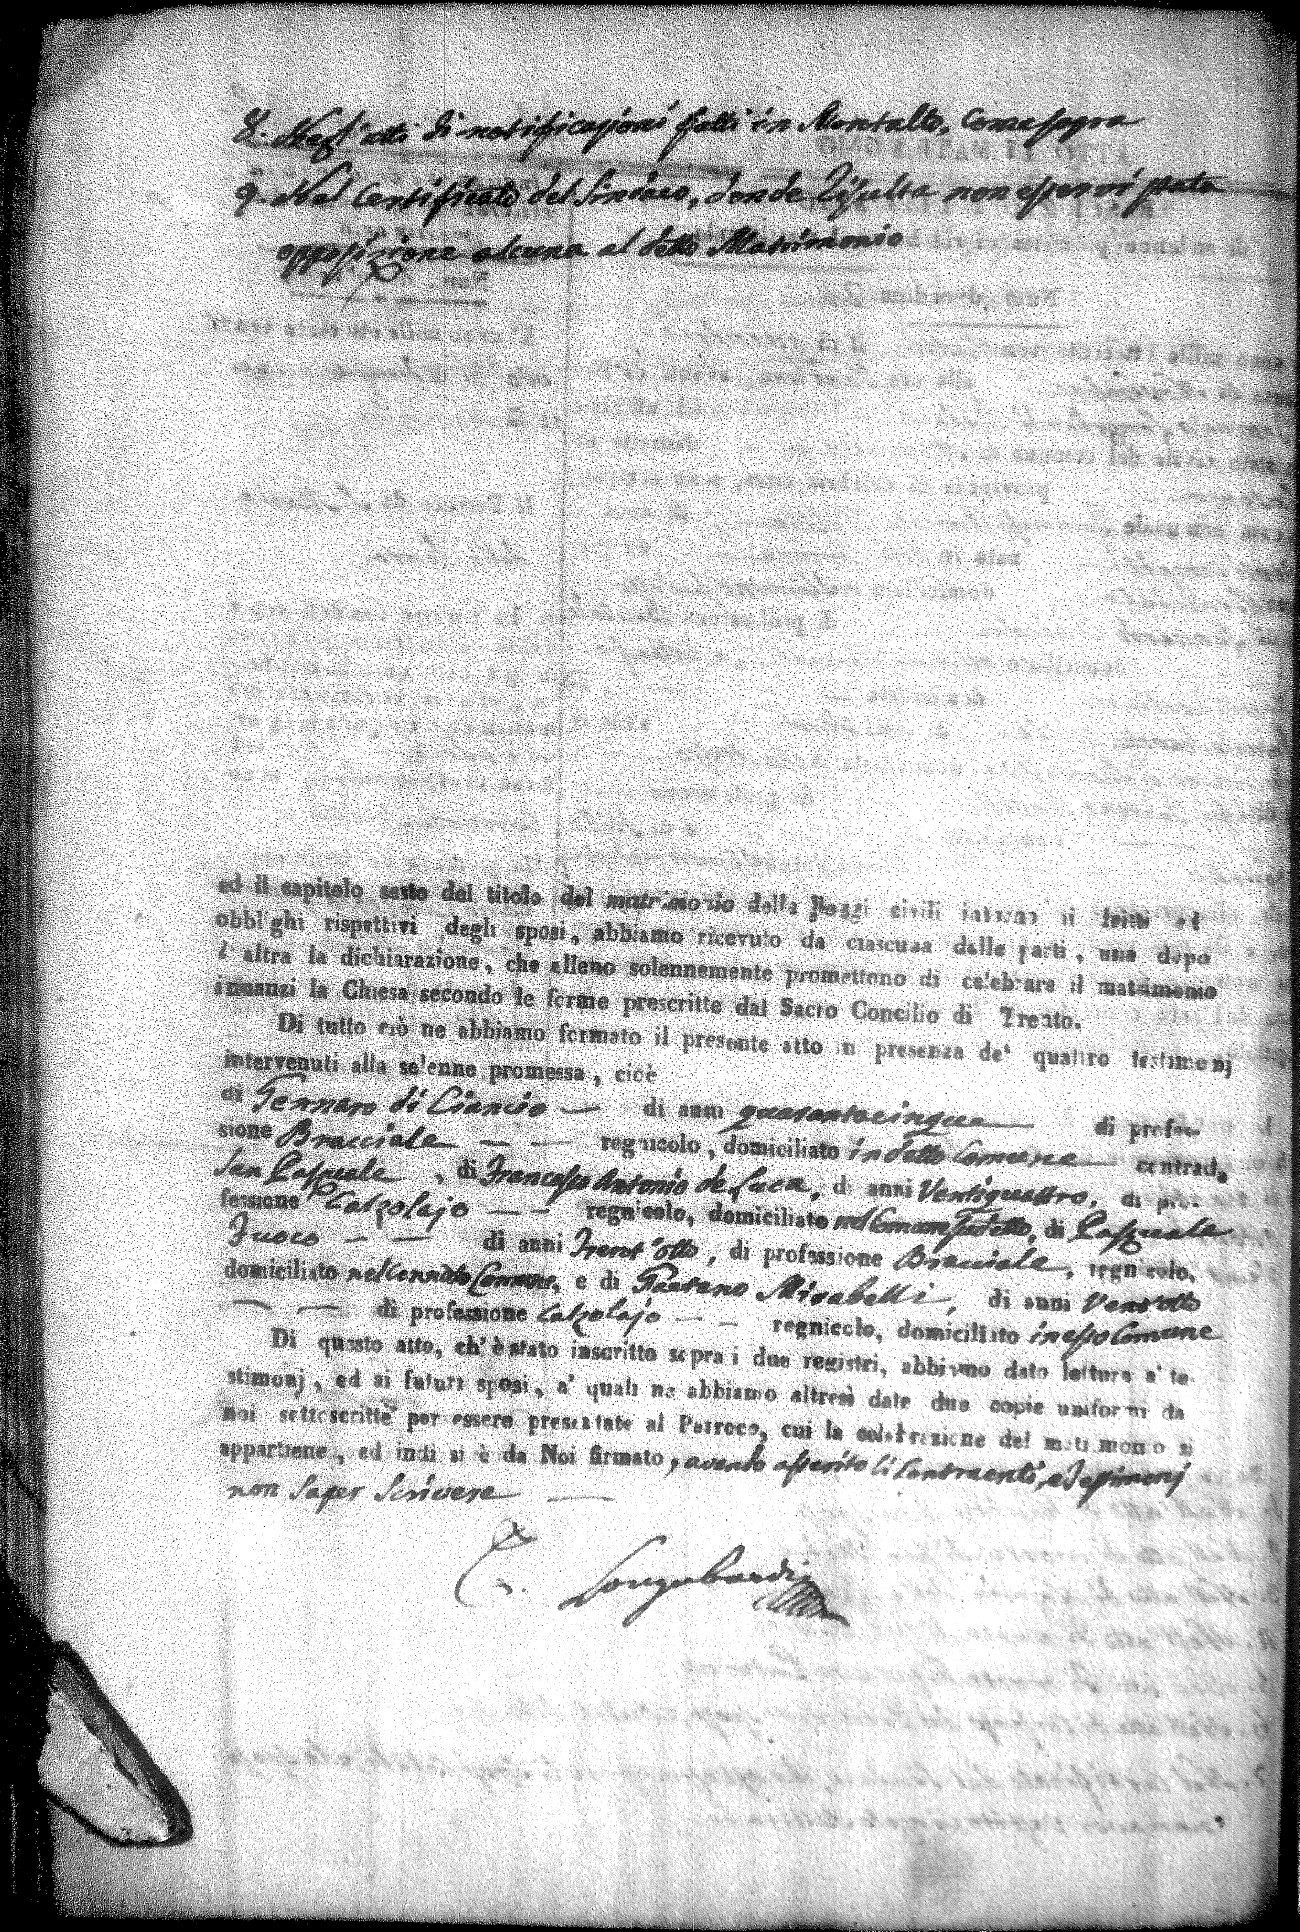 8. Negl'atti di notificazioni fatti in Montalto, Come sopra
9. Nel Certificato del Sindaco, donde Risulta non esservi stata
opposizione alcuna al detto Matrimonio
ed il capitolo sesto del titolo del matrimonio delle leggi civili intorno i diritti ed
obblighi rispettivi degli sposi, abbiamo ricevuto da ciascuna delle parti, una dopo
l'altra la dichiarazione, che elleno solennemente promettono di celebrare il matrimonio
innanzi la Chiesa secondo le forme prescritte dal Sacro Concilio di Trento.
Di tutto ciò ne abbiamo formato il presente atto in presenza de' quattro testimonj
intervenuti alla solenne promessa, cioè
di Gennaro di Ciancio — di anni quarantacinque — di profes-
sione Bracciale — — regnicolo, domiciliato in detto Comune — contrada
San Pasquale, di Francesco Antonio de Luca, di anni Ventiquattro, di pro-
fessione Calzolajo — — regnicolo, domiciliato nel Comune, di Pasquale
Fuoco — — di anni Trent'otto, di professione Bracciale, regnicolo,
domiciliato nel Comune, e di Gaetano Mirabelli —, di anni Vent'otto
— — di professione Calzolajo — — regnicolo, domiciliato in esso Comune
Di questo atto, ch'è stato inscritto sopra i due registri, abbiamo dato lettura a' te-
stimonj, ed ai futuri sposi, a' quali ne abbiamo altresì date due copie uniformi da
noi sottoscritte per essere presentate al Parroco, cui la celebrazione del matrimonio si
appartiene, ed indi si è da Noi firmato, avendo asserito li Contraenti, e Testimonj
non saper Scrivere —
Longobardi